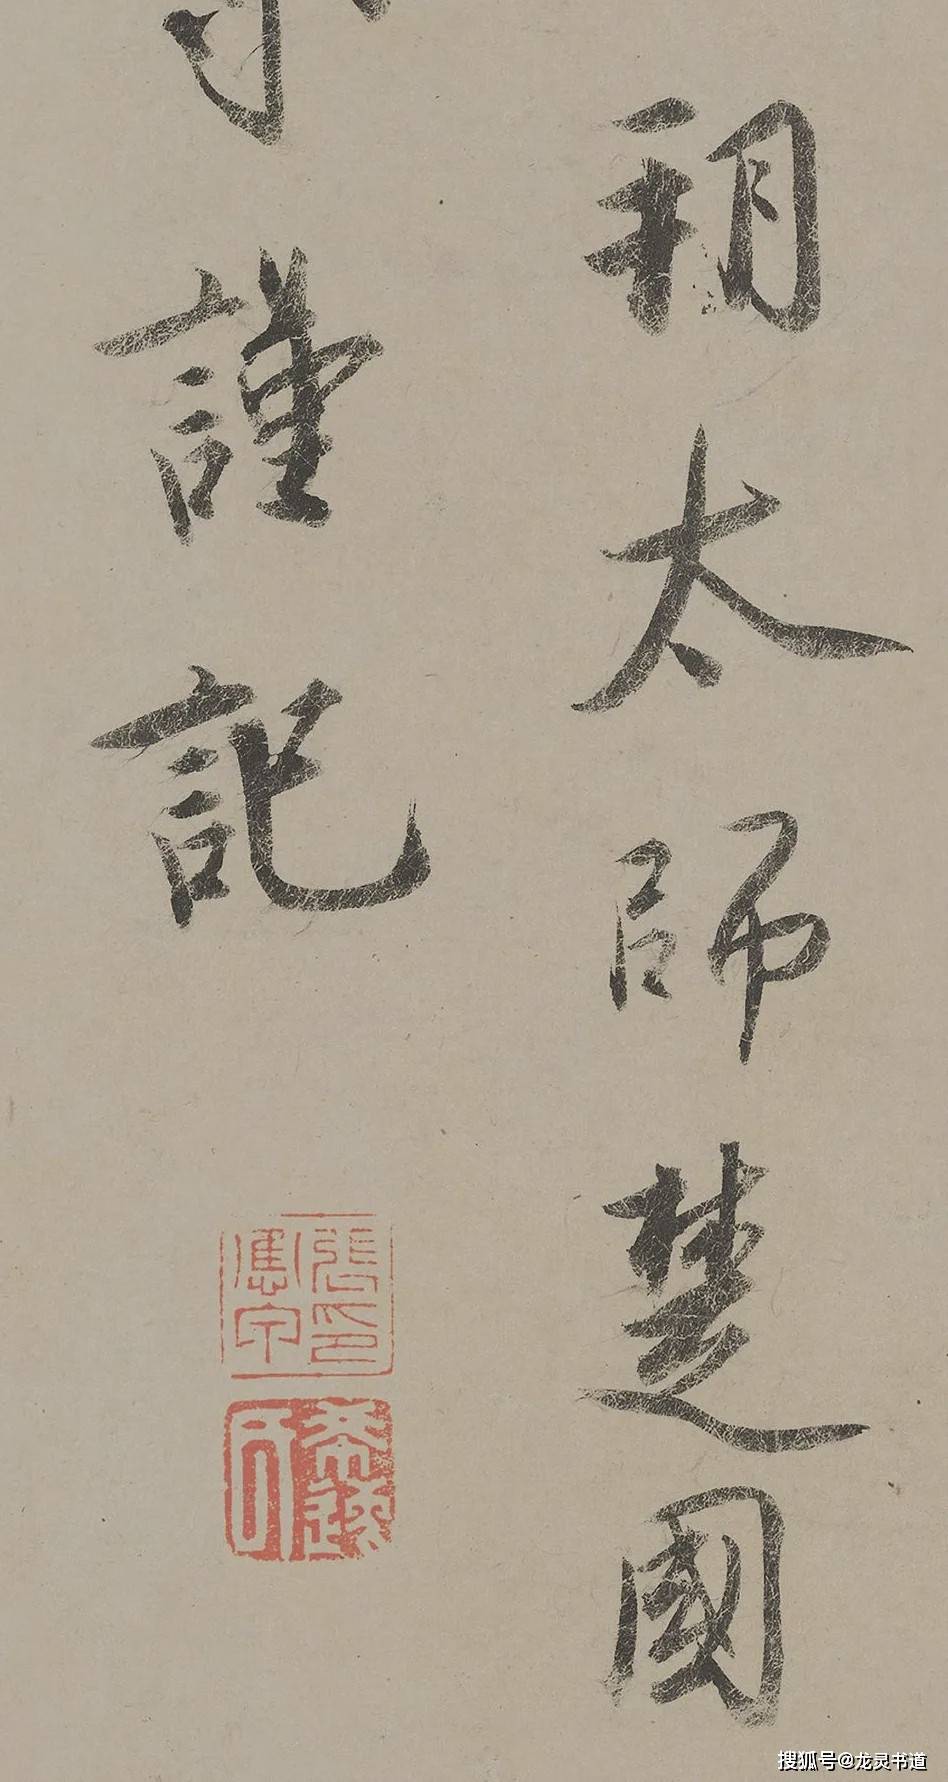 朔太師楚國
謹記
搜狐号@龙灵书道